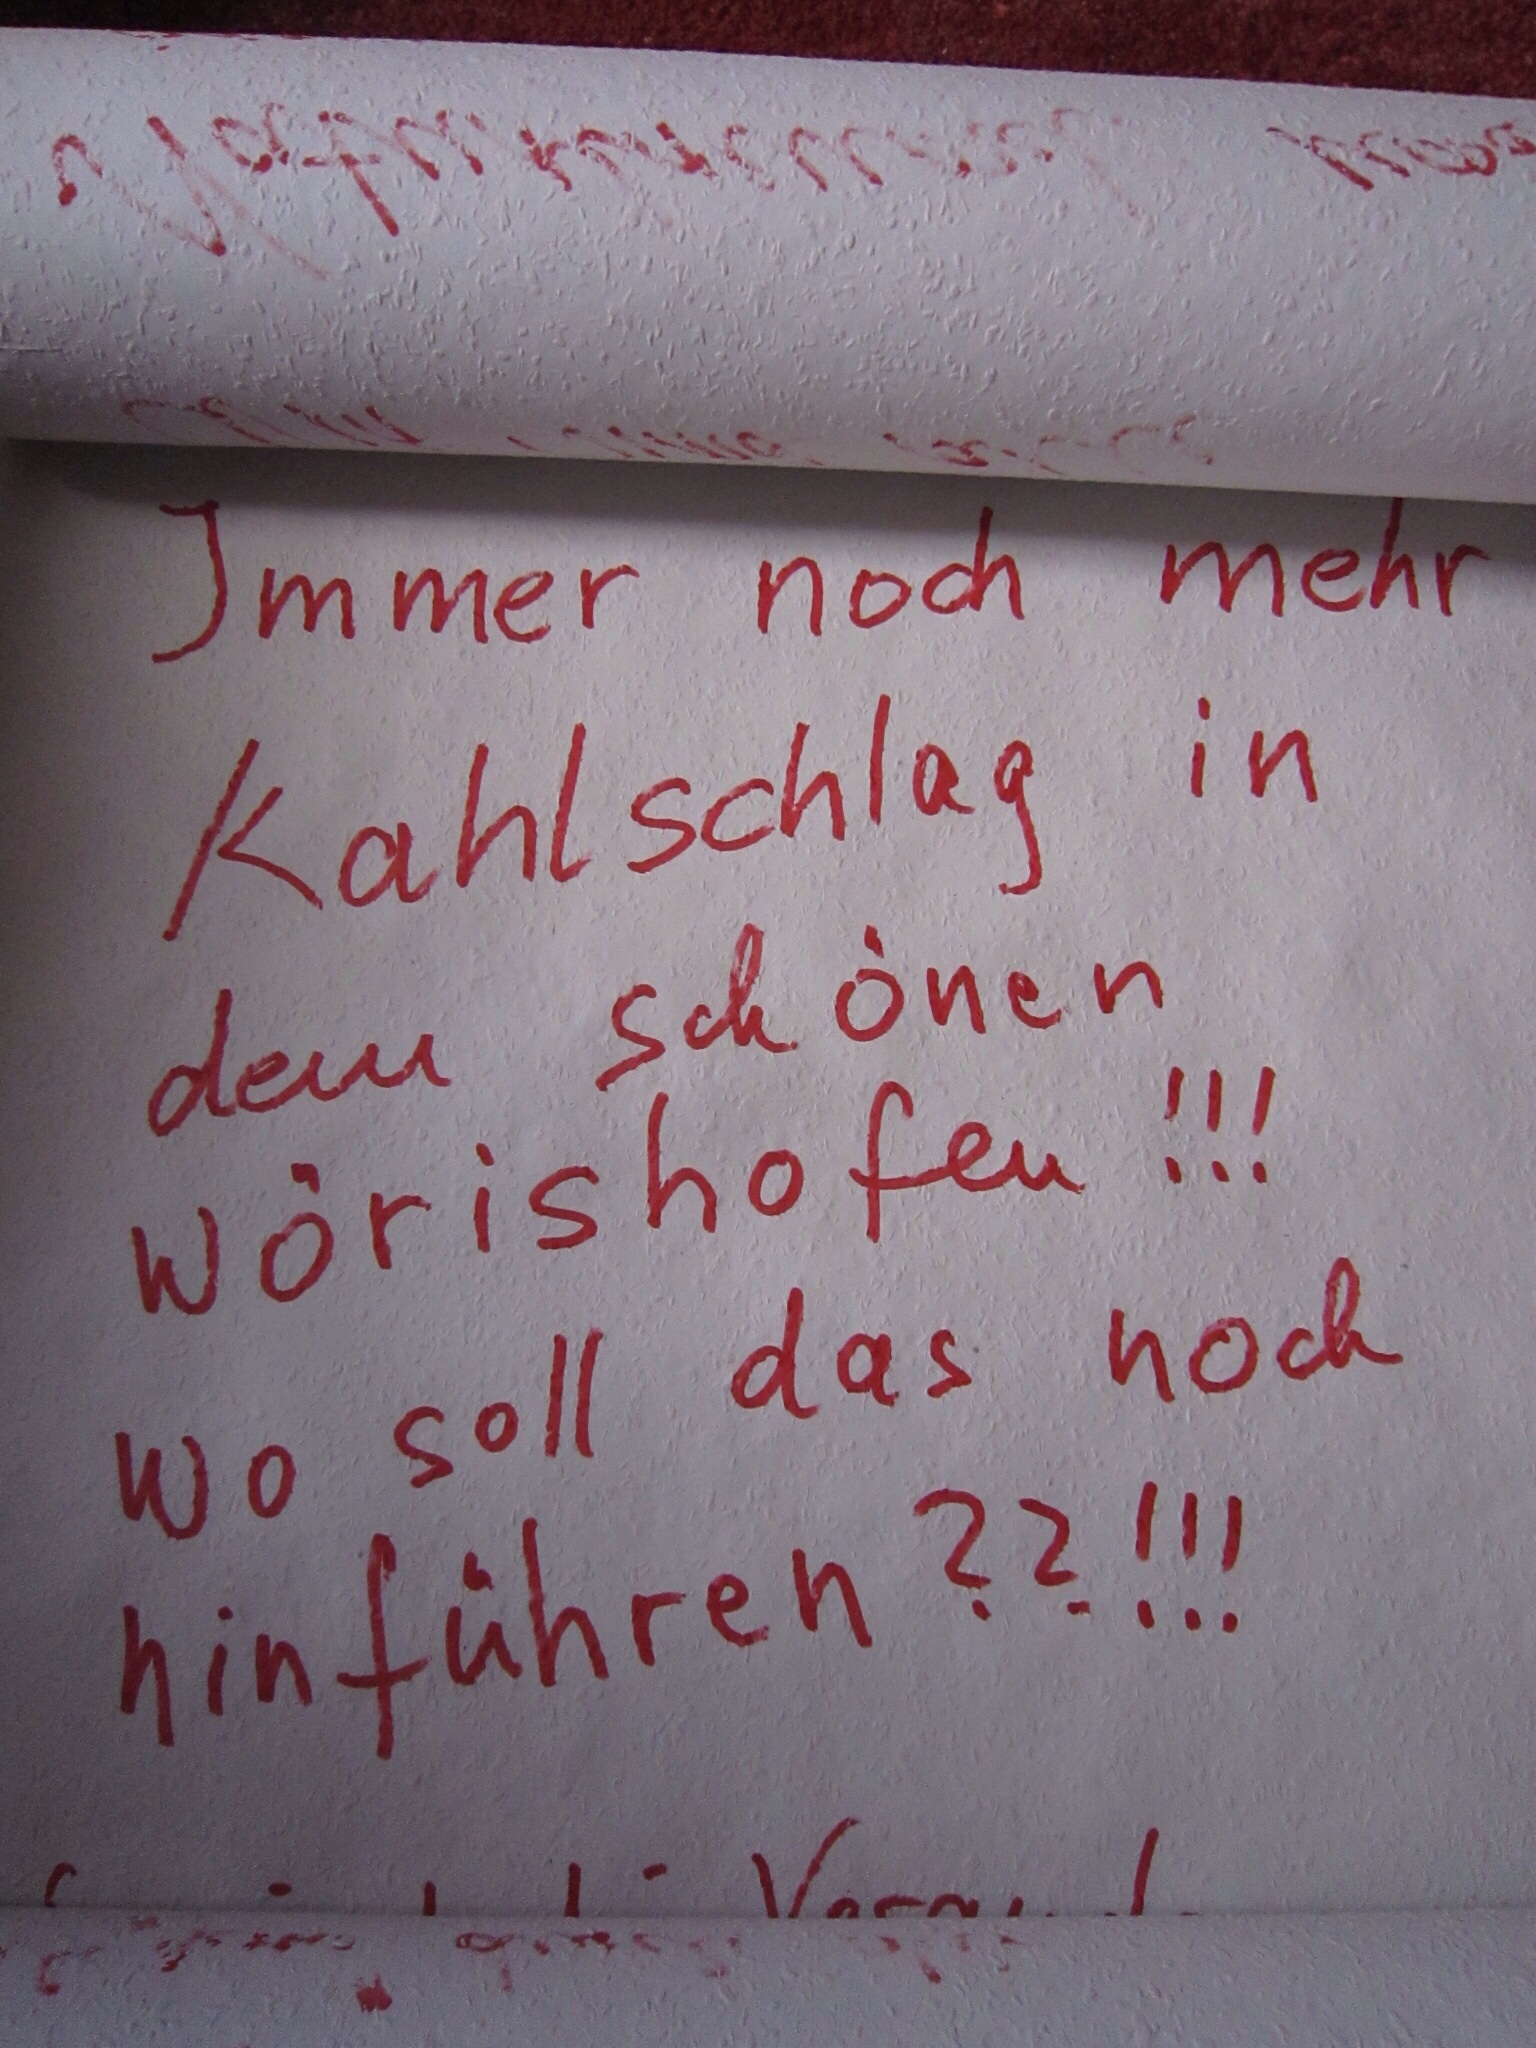 Immer noch mehr
Kahlschlag in
dem schönen
Wörishofen!!!
Wo soll das noch
hinführen??!!!